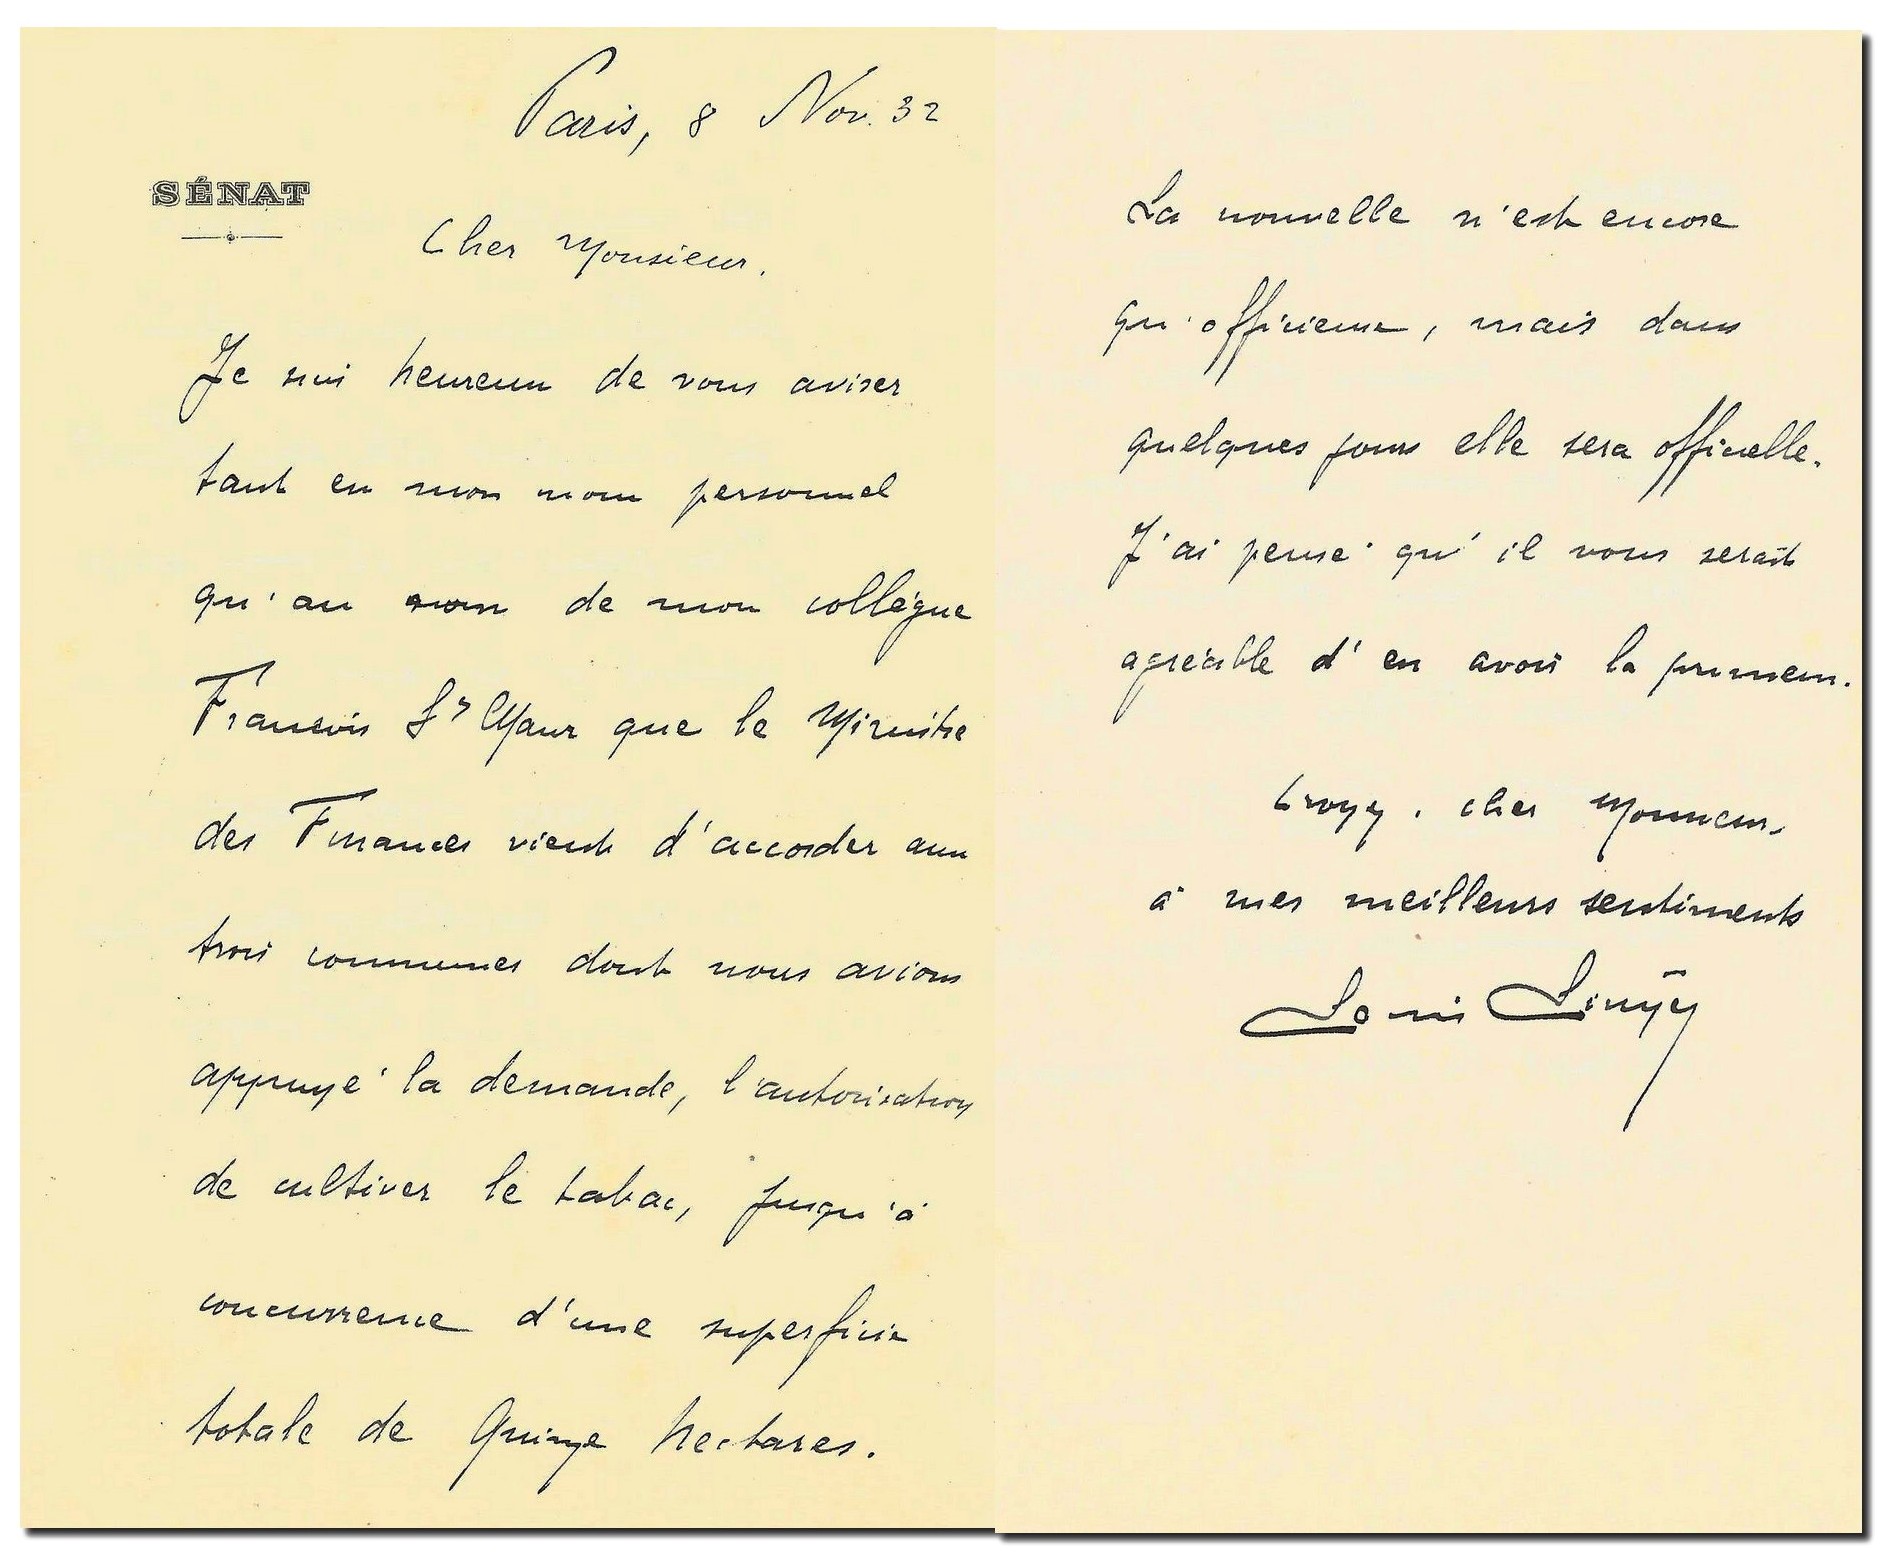 Paris, 8 Nov. 32
SÉNAT
Cher Monsieur.
Je suis heureux de vous aviser
tant en mon nom personnel
qu'au nom de mon collègue
François St Maur que le Ministre
des Finances vient d'accorder aux
trois communes dont nous avions
appuyé la demande, l'autorisation
de cultiver le tabac, jusqu'à
concurrence d'une superficie
totale de Quinze hectares.
La nouvelle n'est encore
qu'officieuse, mais dans
quelques jours elle sera officielle.
J'ai pensé qu'il vous serait
agréable d'en avoir la primeur.
Croyez, cher Monsieur,
à mes meilleurs sentiments
Louis Linÿer